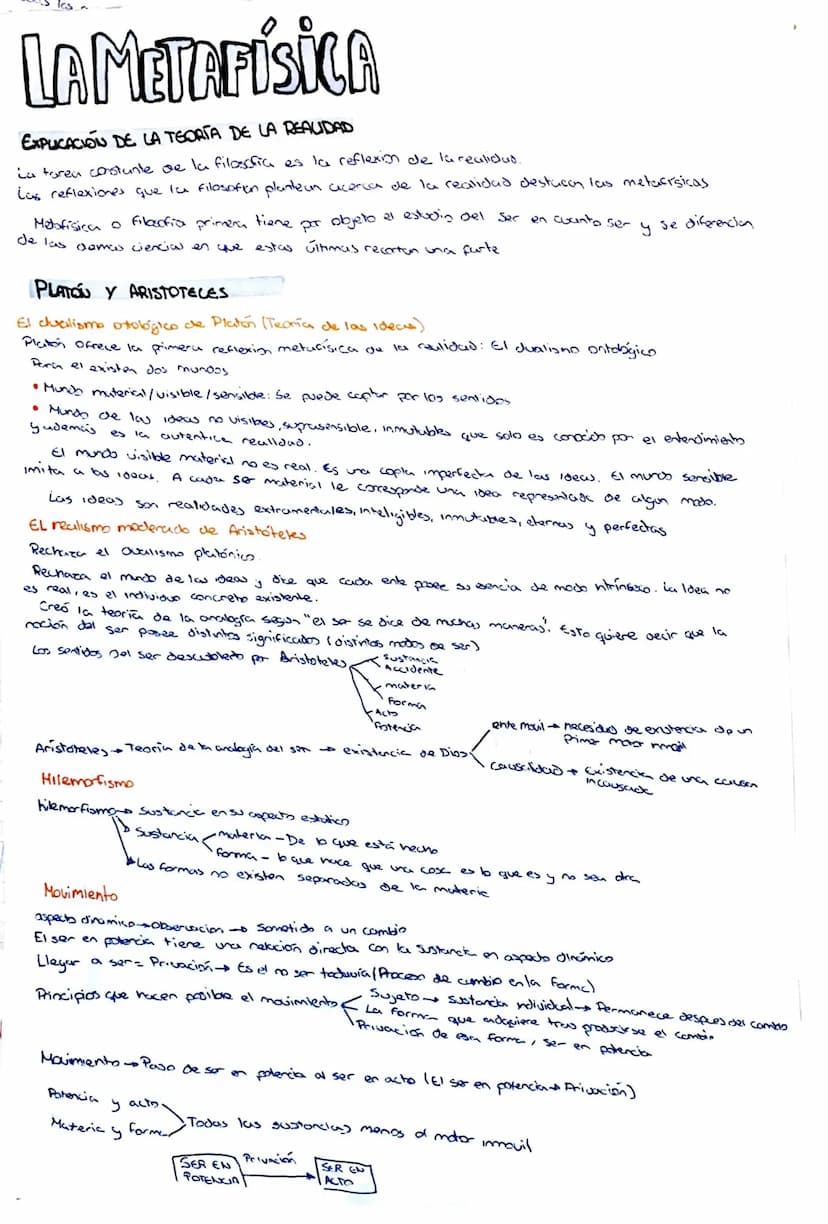 LA METAFÍSICA
EXPLICACIÓN DE LA TEORÍA DE LA REALIDAD
La tarea constante de la filosofía es la reflexión de la realidad.
Las reflexiones que la filosofían plantean acerca de la realidad destacan las metafísicas
Metafísica o filosofía primera tiene por objeto el estudio del ser en cuanto ser y se diferencian
de las demas ciencias en que estas últimas recortan una parte
PLATÓN Y ARISTOTELES
El dualismo otológico de Platón (Teoría de las ideas)
Platón ofrece la primera reflexion metafísica de la realidad: El dualismo ontológico
Para el existen dos mundos
• Mundo material/visible/sensible: Se puede captar por los sentidos
• Mundo de las ideas no visibles, suprasensible, inmutables que solo es conocido por el entendimiento
y además es la autentica realidad.
El mundo visible material no es real. Es una copia imperfecta de las ideas. El mundo sensible
imita a las ideas. A cada ser material le corresponde una idea representada de algun modo.
Las ideas son realidades extramentales, inteligibles, inmutables, eternas y perfectas
EL realismo moderado de Aristóteles
Rechaza el dualismo platónico.
Rechaza el mundo de las ideas y dice que cada ente posee su esencia de modo intrínseco. La Idea no
es real, es el individuo concreto existente.
Creó la teoría de la analogía según "el ser se dice de muchas maneras". Esto quiere decir que la
noción del ser posee distintos significados (distintos modos de ser)
Los sentidos del ser descubierto por Aristoteles
Sustancia
Accidente
materia
Forma
Acto
Potencia
Aristoteles → Teoría de la analogía del ser → existencia de Dios
ente movil → necesidad de existencia de un
Primer motor inmovil
causalidad → Existencia de una causa
incausada
Hilemorfismo
hilemorfismo → Sustancia en su aspecto estático
Sustancia
materia - De lo que está hecho
Forma - lo que hace que una cosa es lo que es y no sea otra
Las formas no existen separadas de la materia
Movimiento
aspecto dinamico → observacion → Sometido a un cambio
El ser en potencia tiene una relación directa con la sustancia en aspecto dinámico
Llegar a ser = Privación → Es el no ser todavía (Proceso de cambio en la forma)
Principios que hacen posible el movimiento
Sujeto → Sustancia individual → Permanece despues del cambio
La forma que adquiere tras producirse el cambio
Privación de esa forma, ser en potencia
Movimiento → Paso de ser en potencia al ser en acto (El ser en potencia → Privación)
Potencia y acto
Materia y forma
Todas las sustancias menos el motor inmovil
SER EN
POTENCIA
Privación
SER EN
ACTO